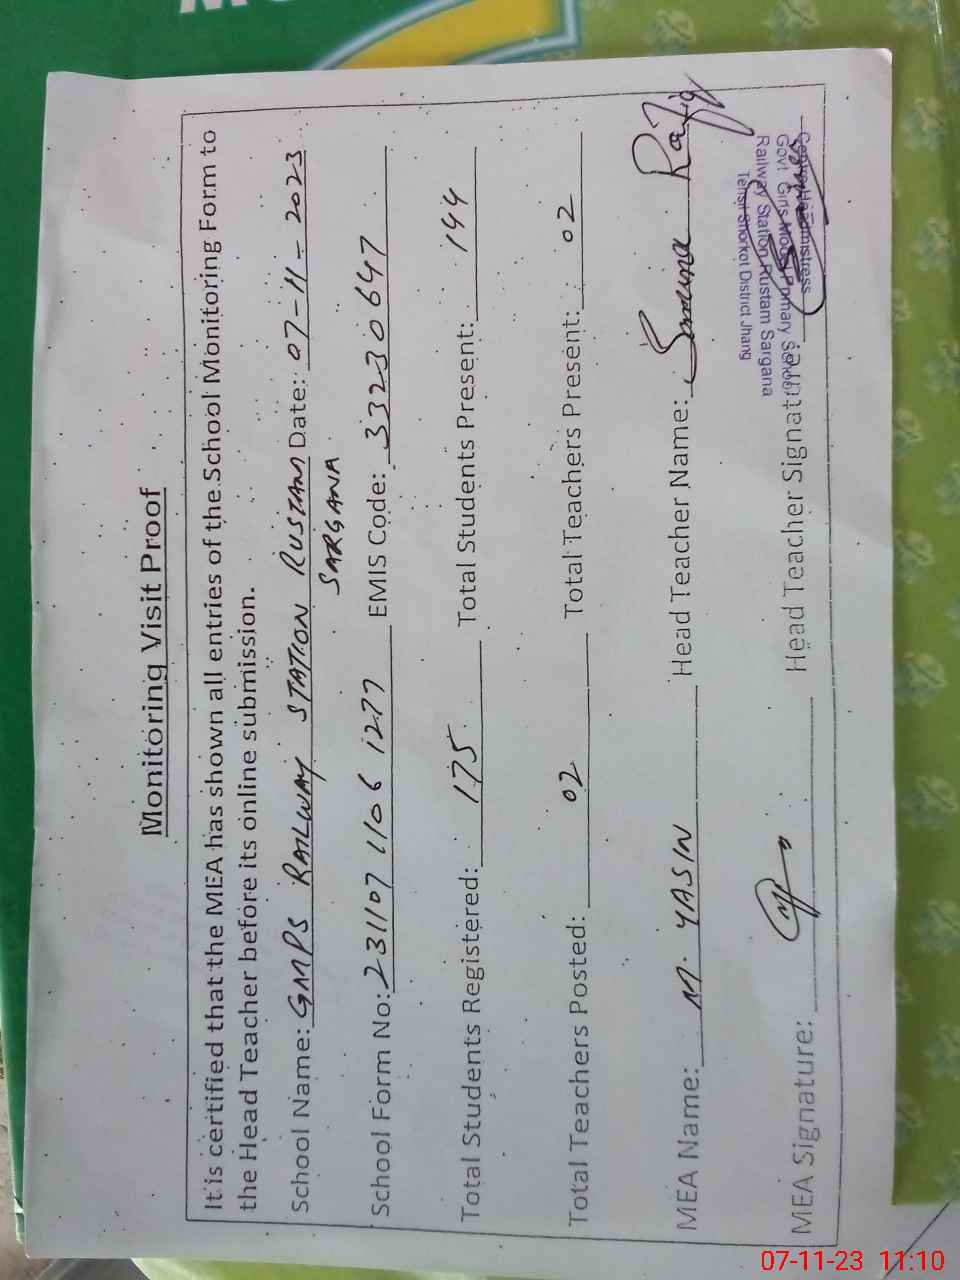 Monitoring Visit Proof
It is certified that the MEA has shown all entries of the School Monitoring Form to
the Head Teacher before its online submission.
School Name: GMPS RAILWAY STATION RUSTAM Date: 07-11-2023
SARGANA
School Form No: 231107 1106 1277 EMIS Code: 33230647
Total Students Registered: 175 Total Students Present: 144
Total Teachers Posted: 02 Total Teachers Present: 02
MEA Name: M. YASIN Head Teacher Name: Rafiq
MEA Signature: Head Teacher Signature:
Govt Girls Model Primary School
Railway Station Rustam Sargana
Tehsil Shorkot District Jhang
07-11-23 11:10